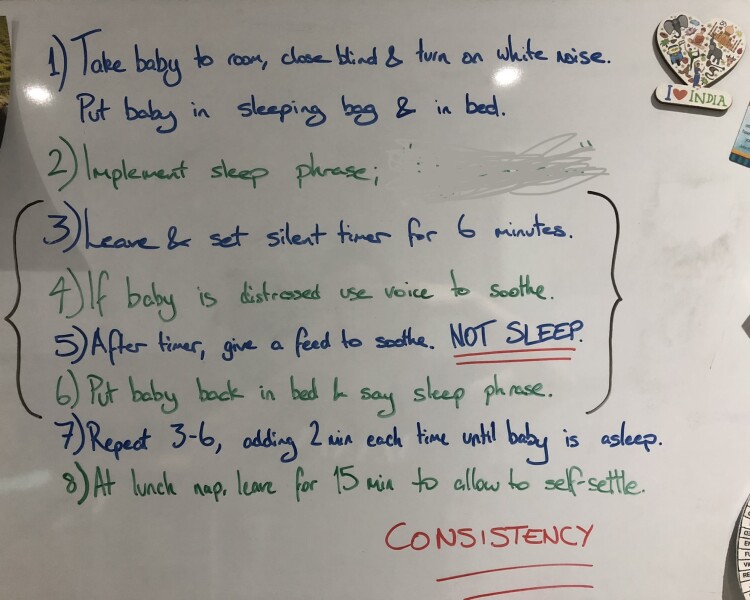 1) Take baby to room, close blind & turn on white noise.
Put baby in sleeping bag & in bed.
I ❤ INDIA
2) Implement sleep phrase;
3) Leave & set silent timer for 6 minutes.
4) If baby is distressed use voice to soothe.
5) After timer, give a feed to soothe. NOT SLEEP.
6) Put baby back in bed & say sleep phrase.
7) Repeat 3-6, adding 2 min each time until baby is asleep.
8) At lunch nap, leave for 15 min to allow to self-settle.
CONSISTENCY